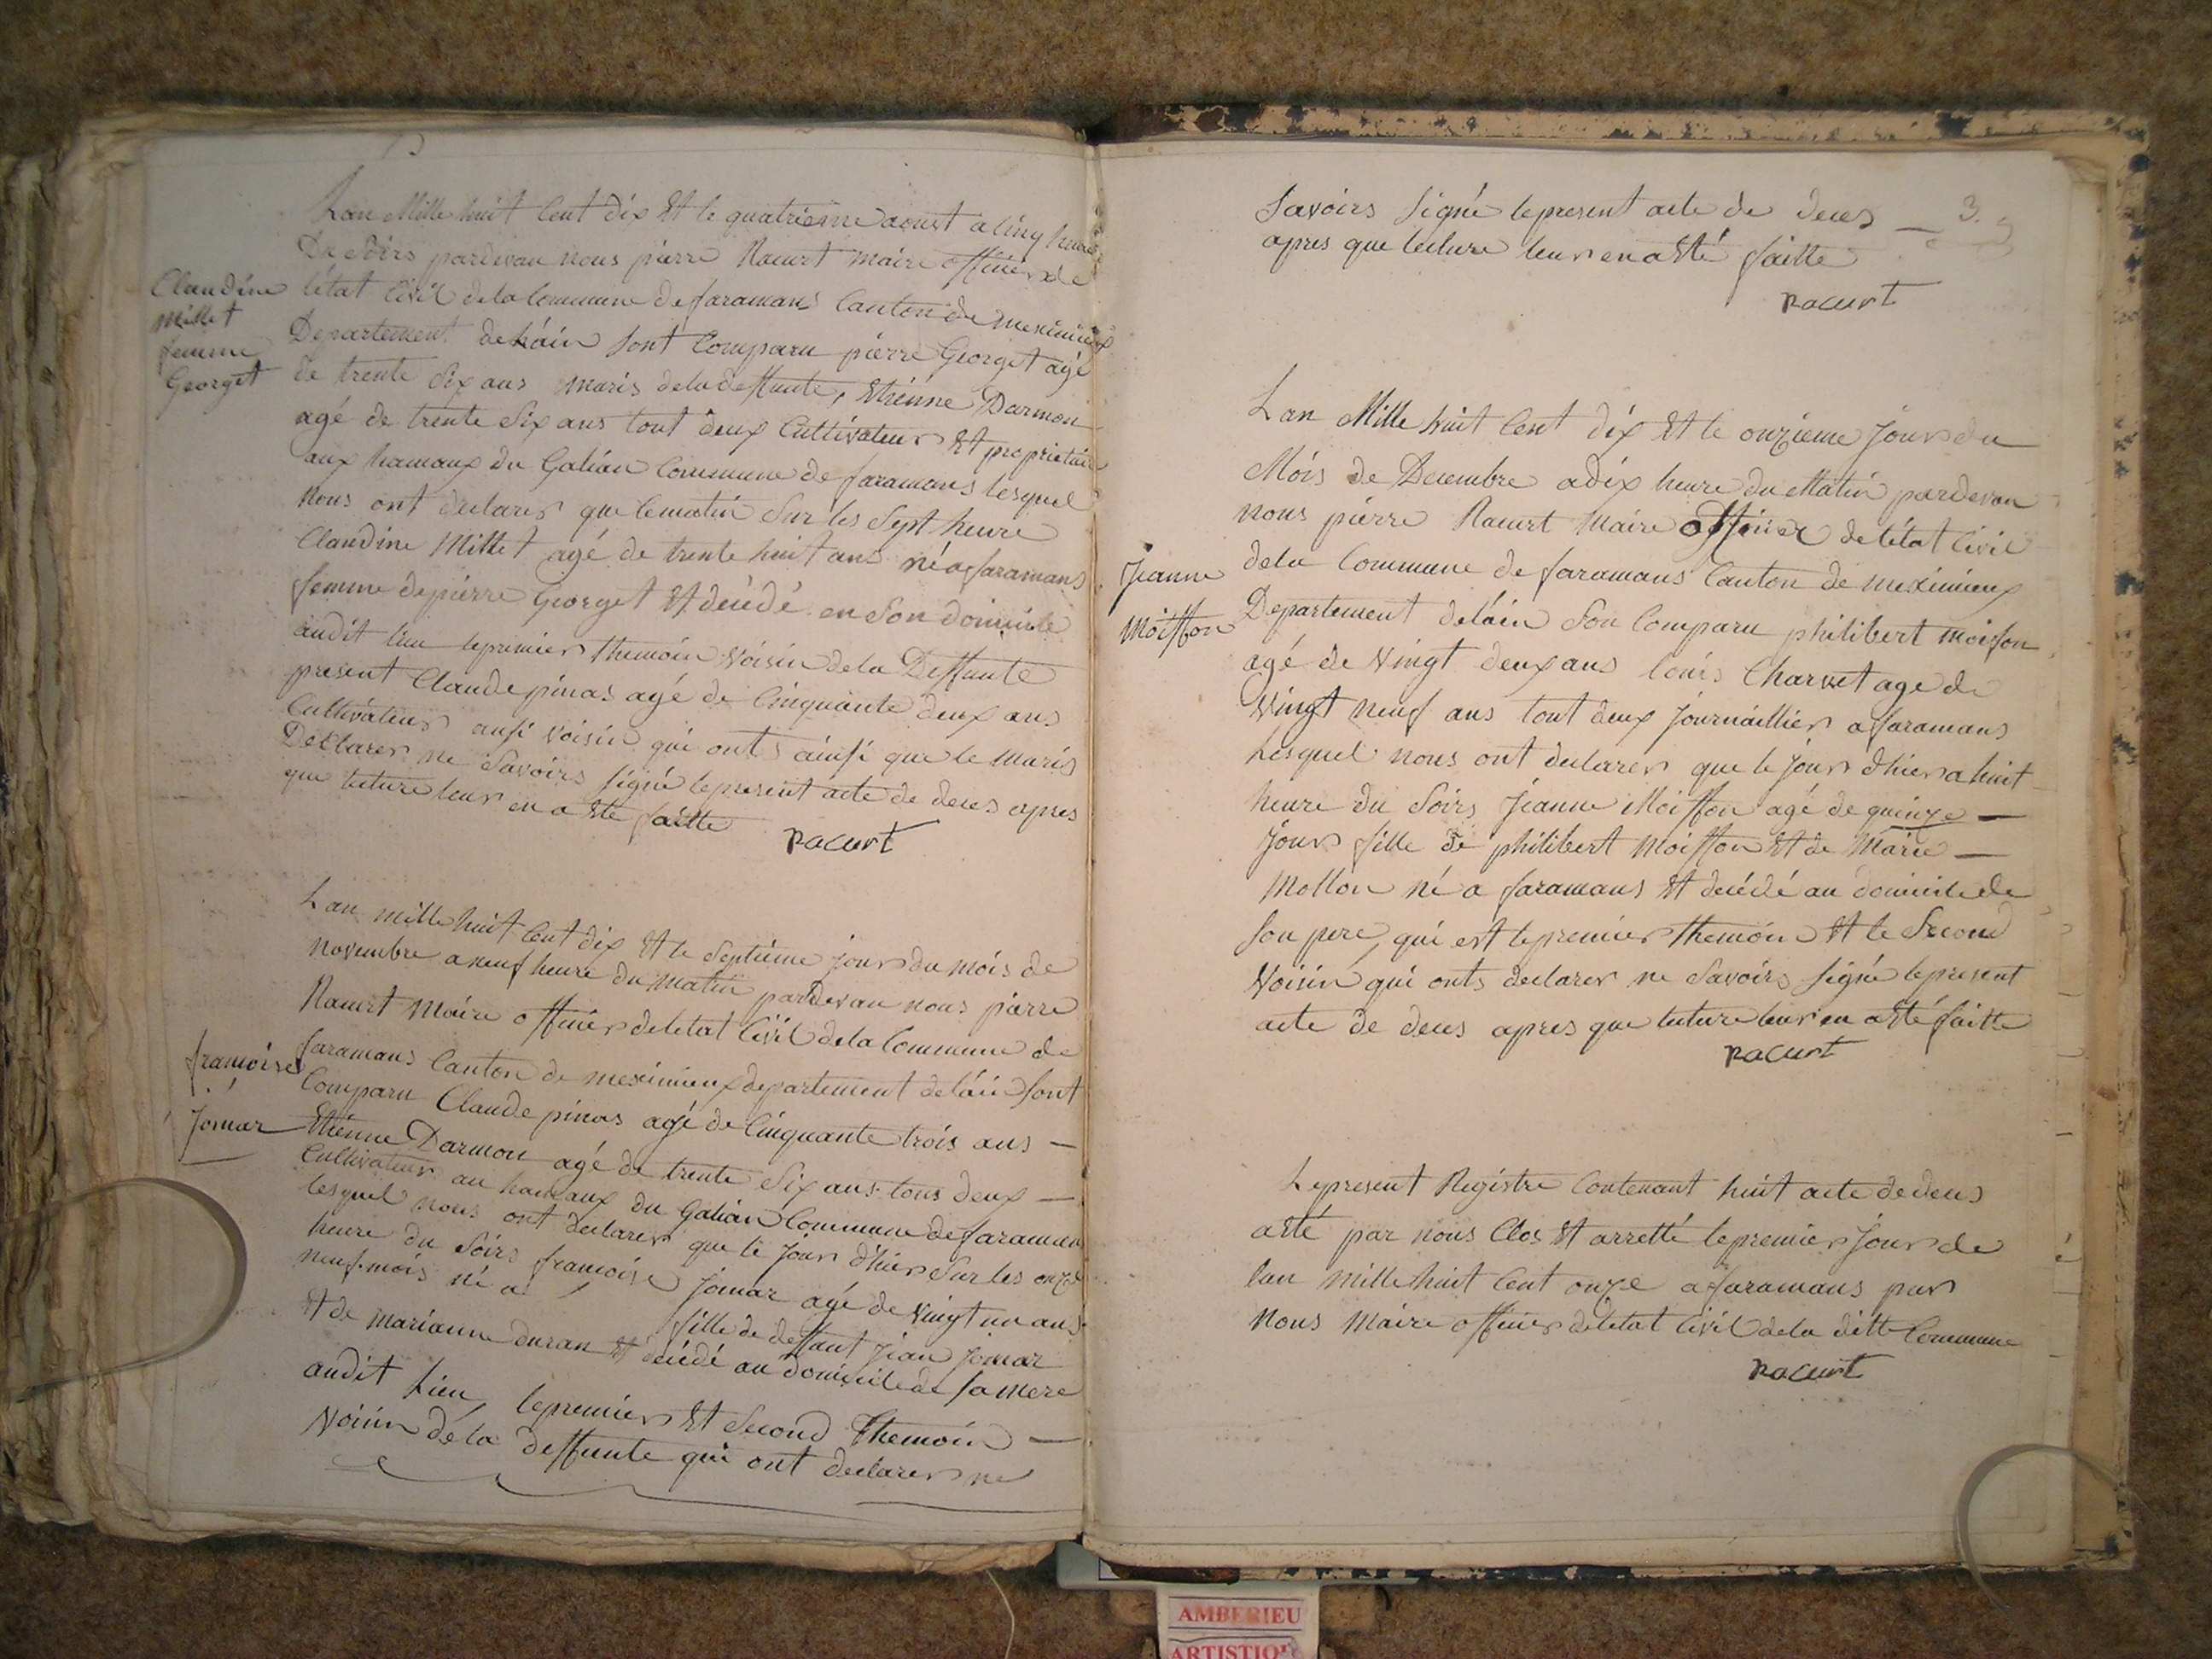 Lan Mille huit Cent dix Et le quatrieme aoust a Cinq heure
Du Soirs pardevan nous pierre Racurt maire officier de
Claudine
Millet
femme
Georget
létat Civil dela Commune de faramans Canton de meximieux
Departement de láin sont Comparu pierre Georget agé
de trente Six ans maris dela deffunte, Etiénne Darmon
agé de trente Six ans tout deux Cultivateur Et proprietaire
aux hamaux du Galian Commune de faramans lesquel
nous ont declarer que le matin Sur les Sept heure
Claudine Millet agé de trente huit ans né a faramans
femme de pierre Georget Et décédé en Son domicile
audit lieu le premier themoin Voisin dela Deffunte
présent Claude pinas agé de Cinquante deux ans
Cultivateur ausi Voisin qui onts ainsi que le maris
Declarer ne Savoirs signé le present acte de deces apres
que lecture leur en a Eté faitte
Racurt
Lan mille huit Cent dix Et le Septieme jour du mois de
Novembre a neuf heure du matin pardevan nous pierre
Racurt Maire officier deletat Civil dela Commune de
francoise
Jomar
faramans Canton de meximieux departement deláin sont
Comparu Claude pinas agé de Cinquante trois ans —
Etiénne Darmon agé de trente Six ans tous deux —
Cultivateur au hamaux du Galian Commune de faramans
lesquel nous ont declarer que le jour d'hier Sur les onze
heure du Soirs francoise Jomar agé de Vingt un ans
neuf mois né a fille de deffunt Jean Jomar
Et de marianne duran Et décédé au domicile de sa mere
audit Lieu, le premier Et Second Themoin —
Voisin déla deffunte qui ont declarer ne
3
Savoirs Signé le present acte de deces —
apres que lecture leur en a Eté faitte
Racurt
Lan Mille huit Cent dix Et le onzieme jour du
Mois de Decembre a dix heure du Matin pardevan
nous pierre Racurt Maire officier de létat Civil
Jeanne
Moiffon
dela Commune de faramans Canton de meximieux
Departement deláin Son Comparu philibert moiffon
agé de Vingt deux ans louis Charvet age de
Vingt neuf ans tout deux journaillier a faramans
Lesquel nous ont declarer que le jour d'hier a huit
heure du Soirs Jeanne Moiffon agé de quinze —
jour fille de philibert Moiffon Et de Marie —
Mollon né a faramans Et decédé au domicile de
son pere, qui est le premier themoin Et le Second
Voisin qui onts declarer ne Savoirs signé le present
acte de deces apres que lecture leur en a Eté faitte
Racurt
Le present Registre Contenant huit acte de deces
a Eté par nous Clos Et arretté le premier jour de
lan mille huit Cent onze a faramans par
Nous Maire officier deletat Civil dela ditte Commune
Racurt
AMBERIEU
ARTISTIQUE